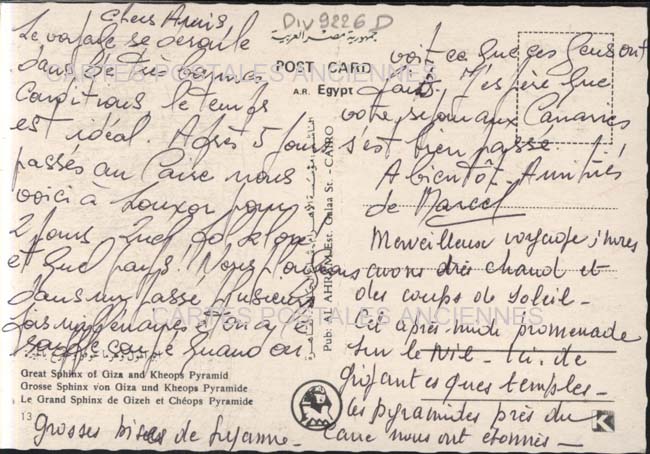 Div 9226 D
Chers Amis
Le voyage se déroule
dans de très bonnes
conditions le temps
est idéal. Après 5 jours
passés au Caire nous
voici à Louxor pour
2 jours. Quel
et quel pays! Nous
dans un passé plusieurs
fois millénaires
quand on
voit ce que ces gens ont
fait. J'espère que
votre séjour aux Canaries
s'est bien passé.
A bientôt. Amitiés
de Marcel
Merveilleux voyage, nous
avons très chaud et
des coups de soleil -
Cet après-midi promenade
sur le Nil - ici de
gigantesques temples -
les pyramides près du
Caire nous ont étonnés -
Grosses bises de Suzanne -
جمهورية مصر العربية
POST CARD
A.R. Egypt
CARTES POSTALES ANCIENNES
CARTES POSTALES ANCIENNES
Pub: AL AHRAM Est. Onlaa St. - CAIRO
Great Sphinx of Giza and Kheops Pyramid
Grosse Sphinx von Giza und Kheops Pyramide
Le Grand Sphinx de Gizeh et Chéops Pyramide
13
K